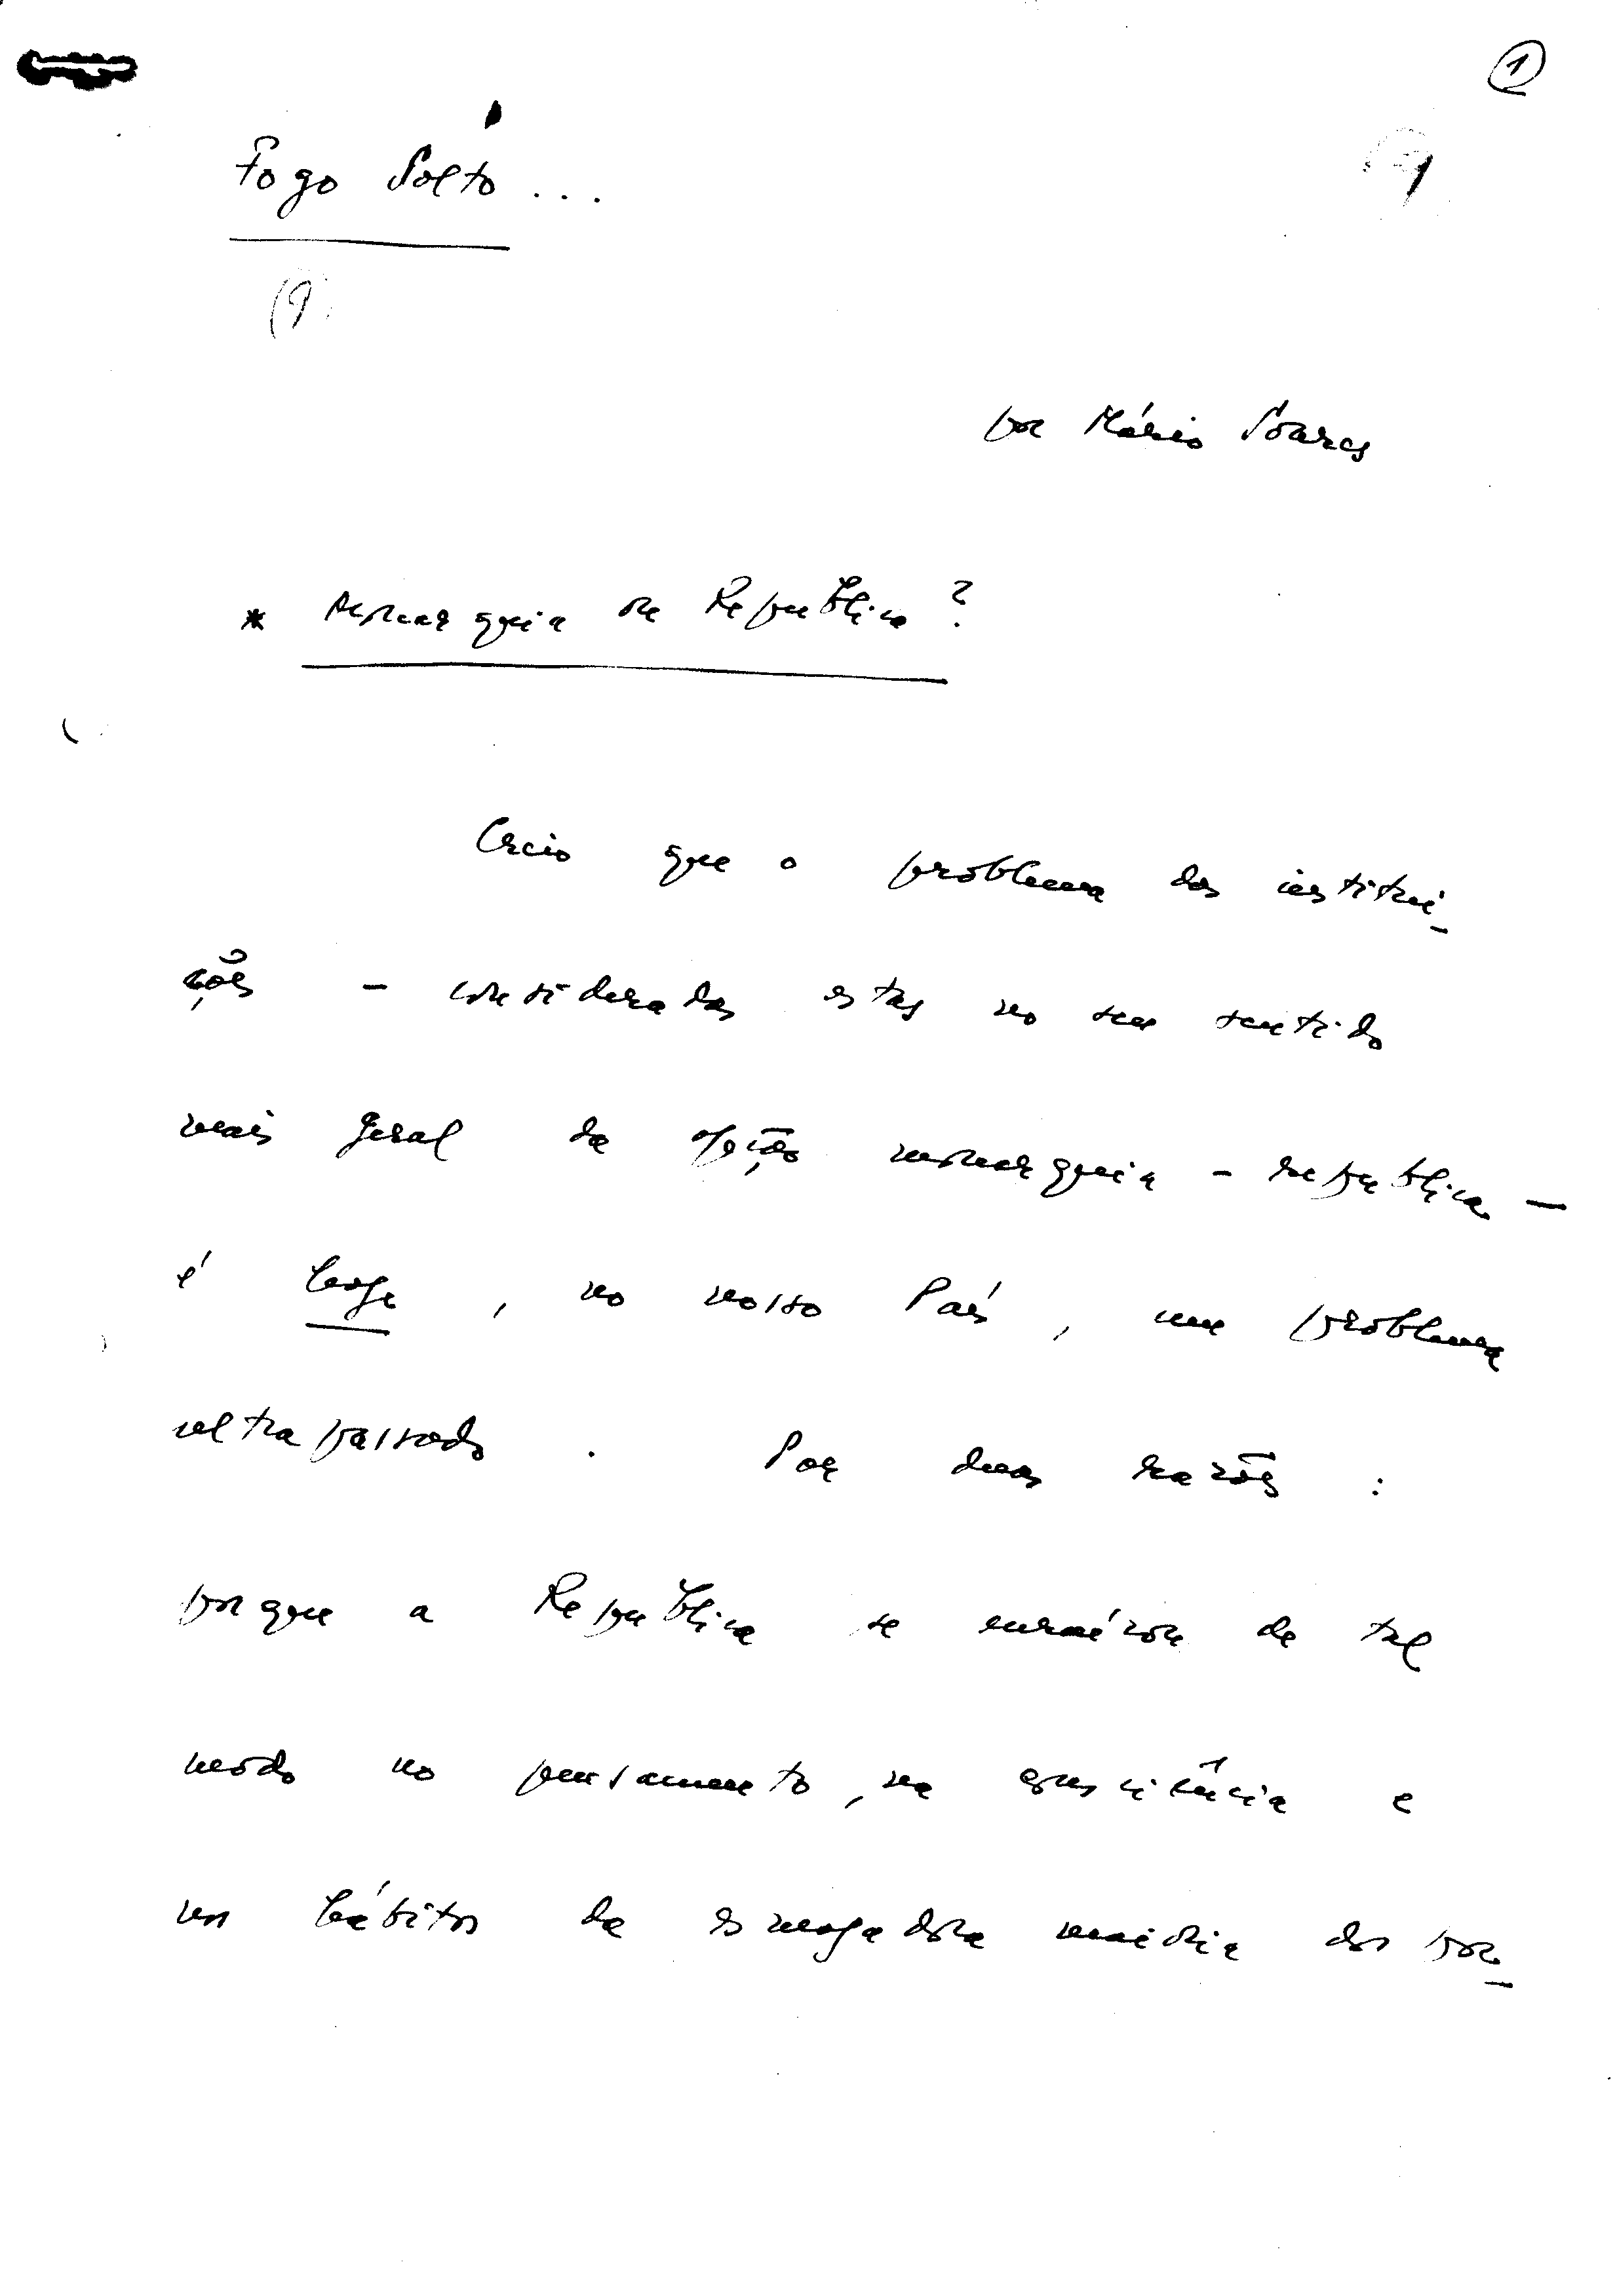 1
Fogo Solto...
por Mário Soares
* Monarquia ou República?
Creio que o problema das institui-
ções - consideradas estas no seu sentido
mais geral da opção monarquia - república -
é hoje, no nosso País, um problema
ultrapassado. Por duas razões:
porque a República se enraízou de tal
modo no pensamento, na consciência e
nos hábitos da esmagadora maioria dos por-